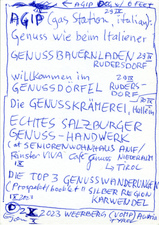 ← AGIP
AGIP (gas station, italian):
Genuss wie beim Italiener
GENUSSBAUERNLADEN
RUDERSDORF
willkommen im
GENUSSDÖRFEL RUDERS-
DORF
Die GENUSSKRÄMEREI, Hallein
ECHTES SALZBURGER
GENUSS-HANDWERK
(at SENIORENWOHNHAUS ANIF/
VIVA Café Genuss NIEDERAU
TIROL
DIE TOP 3 GENUSSWANDERUNGEN
SILBER REGION
KARWENDEL
2023 WEERBERG